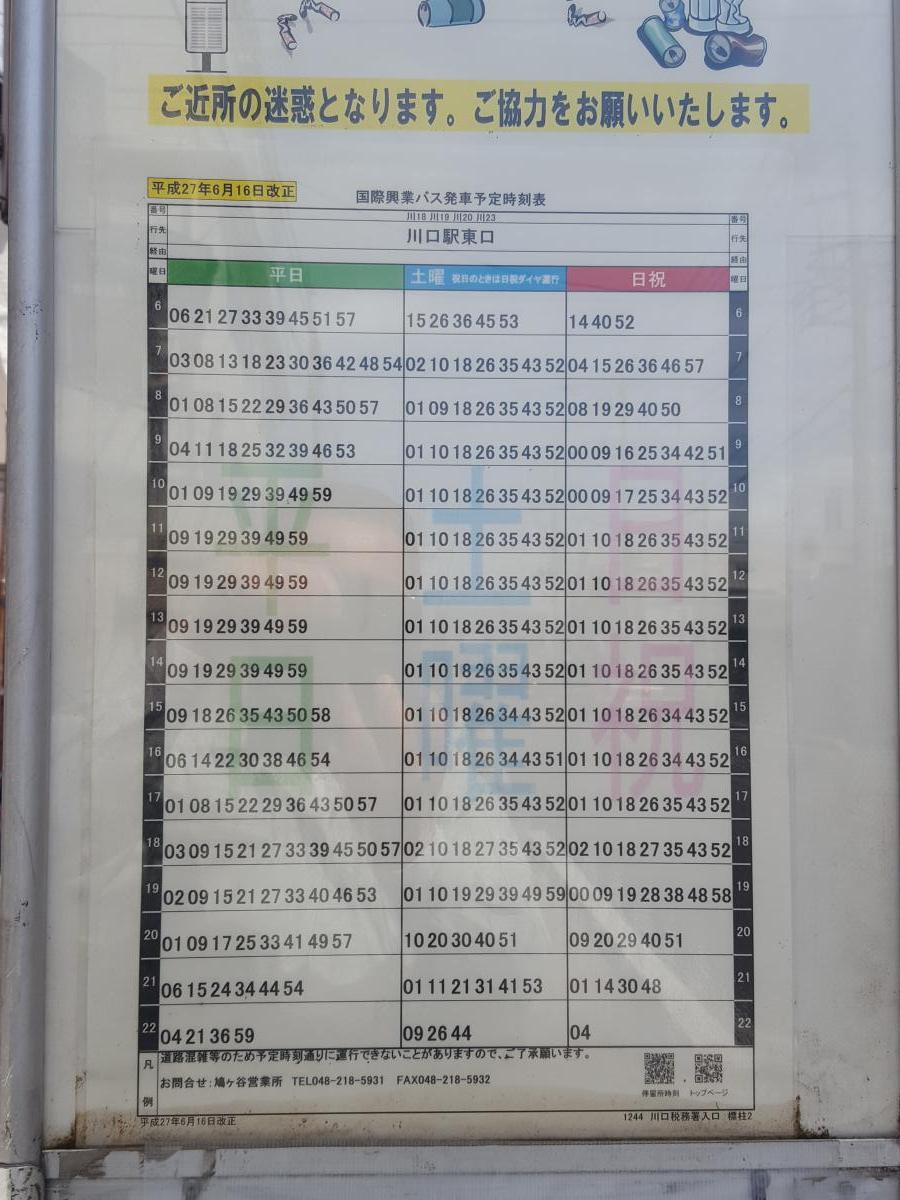 ご近所の迷惑となります。ご協力をお願いいたします。
平成27年6月16日改正
国際興業バス発車予定時刻表
番号 川18 川19 川20 川23 番号
行先 川口駅東口 行先
経由 経由
曜日 平日 土曜 祝日のときは日祝ダイヤ運行 日祝 曜日
6 06 21 27 33 39 45 51 57 15 26 36 45 53 14 40 52 6
7 03 08 13 18 23 30 36 42 48 54 02 10 18 26 35 43 52 04 15 26 36 46 57 7
8 01 08 15 22 29 36 43 50 57 01 09 18 26 35 43 52 08 19 29 40 50 8
9 04 11 18 25 32 39 46 53 01 10 18 26 35 43 52 00 09 16 25 34 42 51 9
10 01 09 19 29 39 49 59 01 10 18 26 35 43 52 00 09 17 25 34 43 52 10
11 09 19 29 39 49 59 01 10 18 26 35 43 52 01 10 18 26 35 43 52 11
12 09 19 29 39 49 59 01 10 18 26 35 43 52 01 10 18 26 35 43 52 12
13 09 19 29 39 49 59 01 10 18 26 35 43 52 01 10 18 26 35 43 52 13
14 09 19 29 39 49 59 01 10 18 26 35 43 52 01 10 18 26 35 43 52 14
15 09 18 26 35 43 50 58 01 10 18 26 34 43 52 01 10 18 26 34 43 52 15
16 06 14 22 30 38 46 54 01 10 18 26 34 43 51 01 10 18 26 34 43 52 16
17 01 08 15 22 29 36 43 50 57 01 10 18 26 35 43 52 01 10 18 26 35 43 52 17
18 03 09 15 21 27 33 39 45 50 57 02 10 18 27 35 43 52 02 10 18 27 35 43 52 18
19 02 09 15 21 27 33 40 46 53 01 10 19 29 39 49 59 00 09 19 28 38 48 58 19
20 01 09 17 25 33 41 49 57 10 20 30 40 51 09 20 29 40 51 20
21 06 15 24 34 44 54 01 11 21 31 41 53 01 14 30 48 21
22 04 21 36 59 09 26 44 04 22
平日 土曜 日祝
凡例
道路混雑等のため予定時刻通りに運行できないことがありますので、ご了承願います。
お問合せ:鳩ヶ谷営業所 TEL048-218-5931 FAX048-218-5932
停留所時刻 トップページ
平成27年6月16日改正 1244 川口税務署入口 標柱2